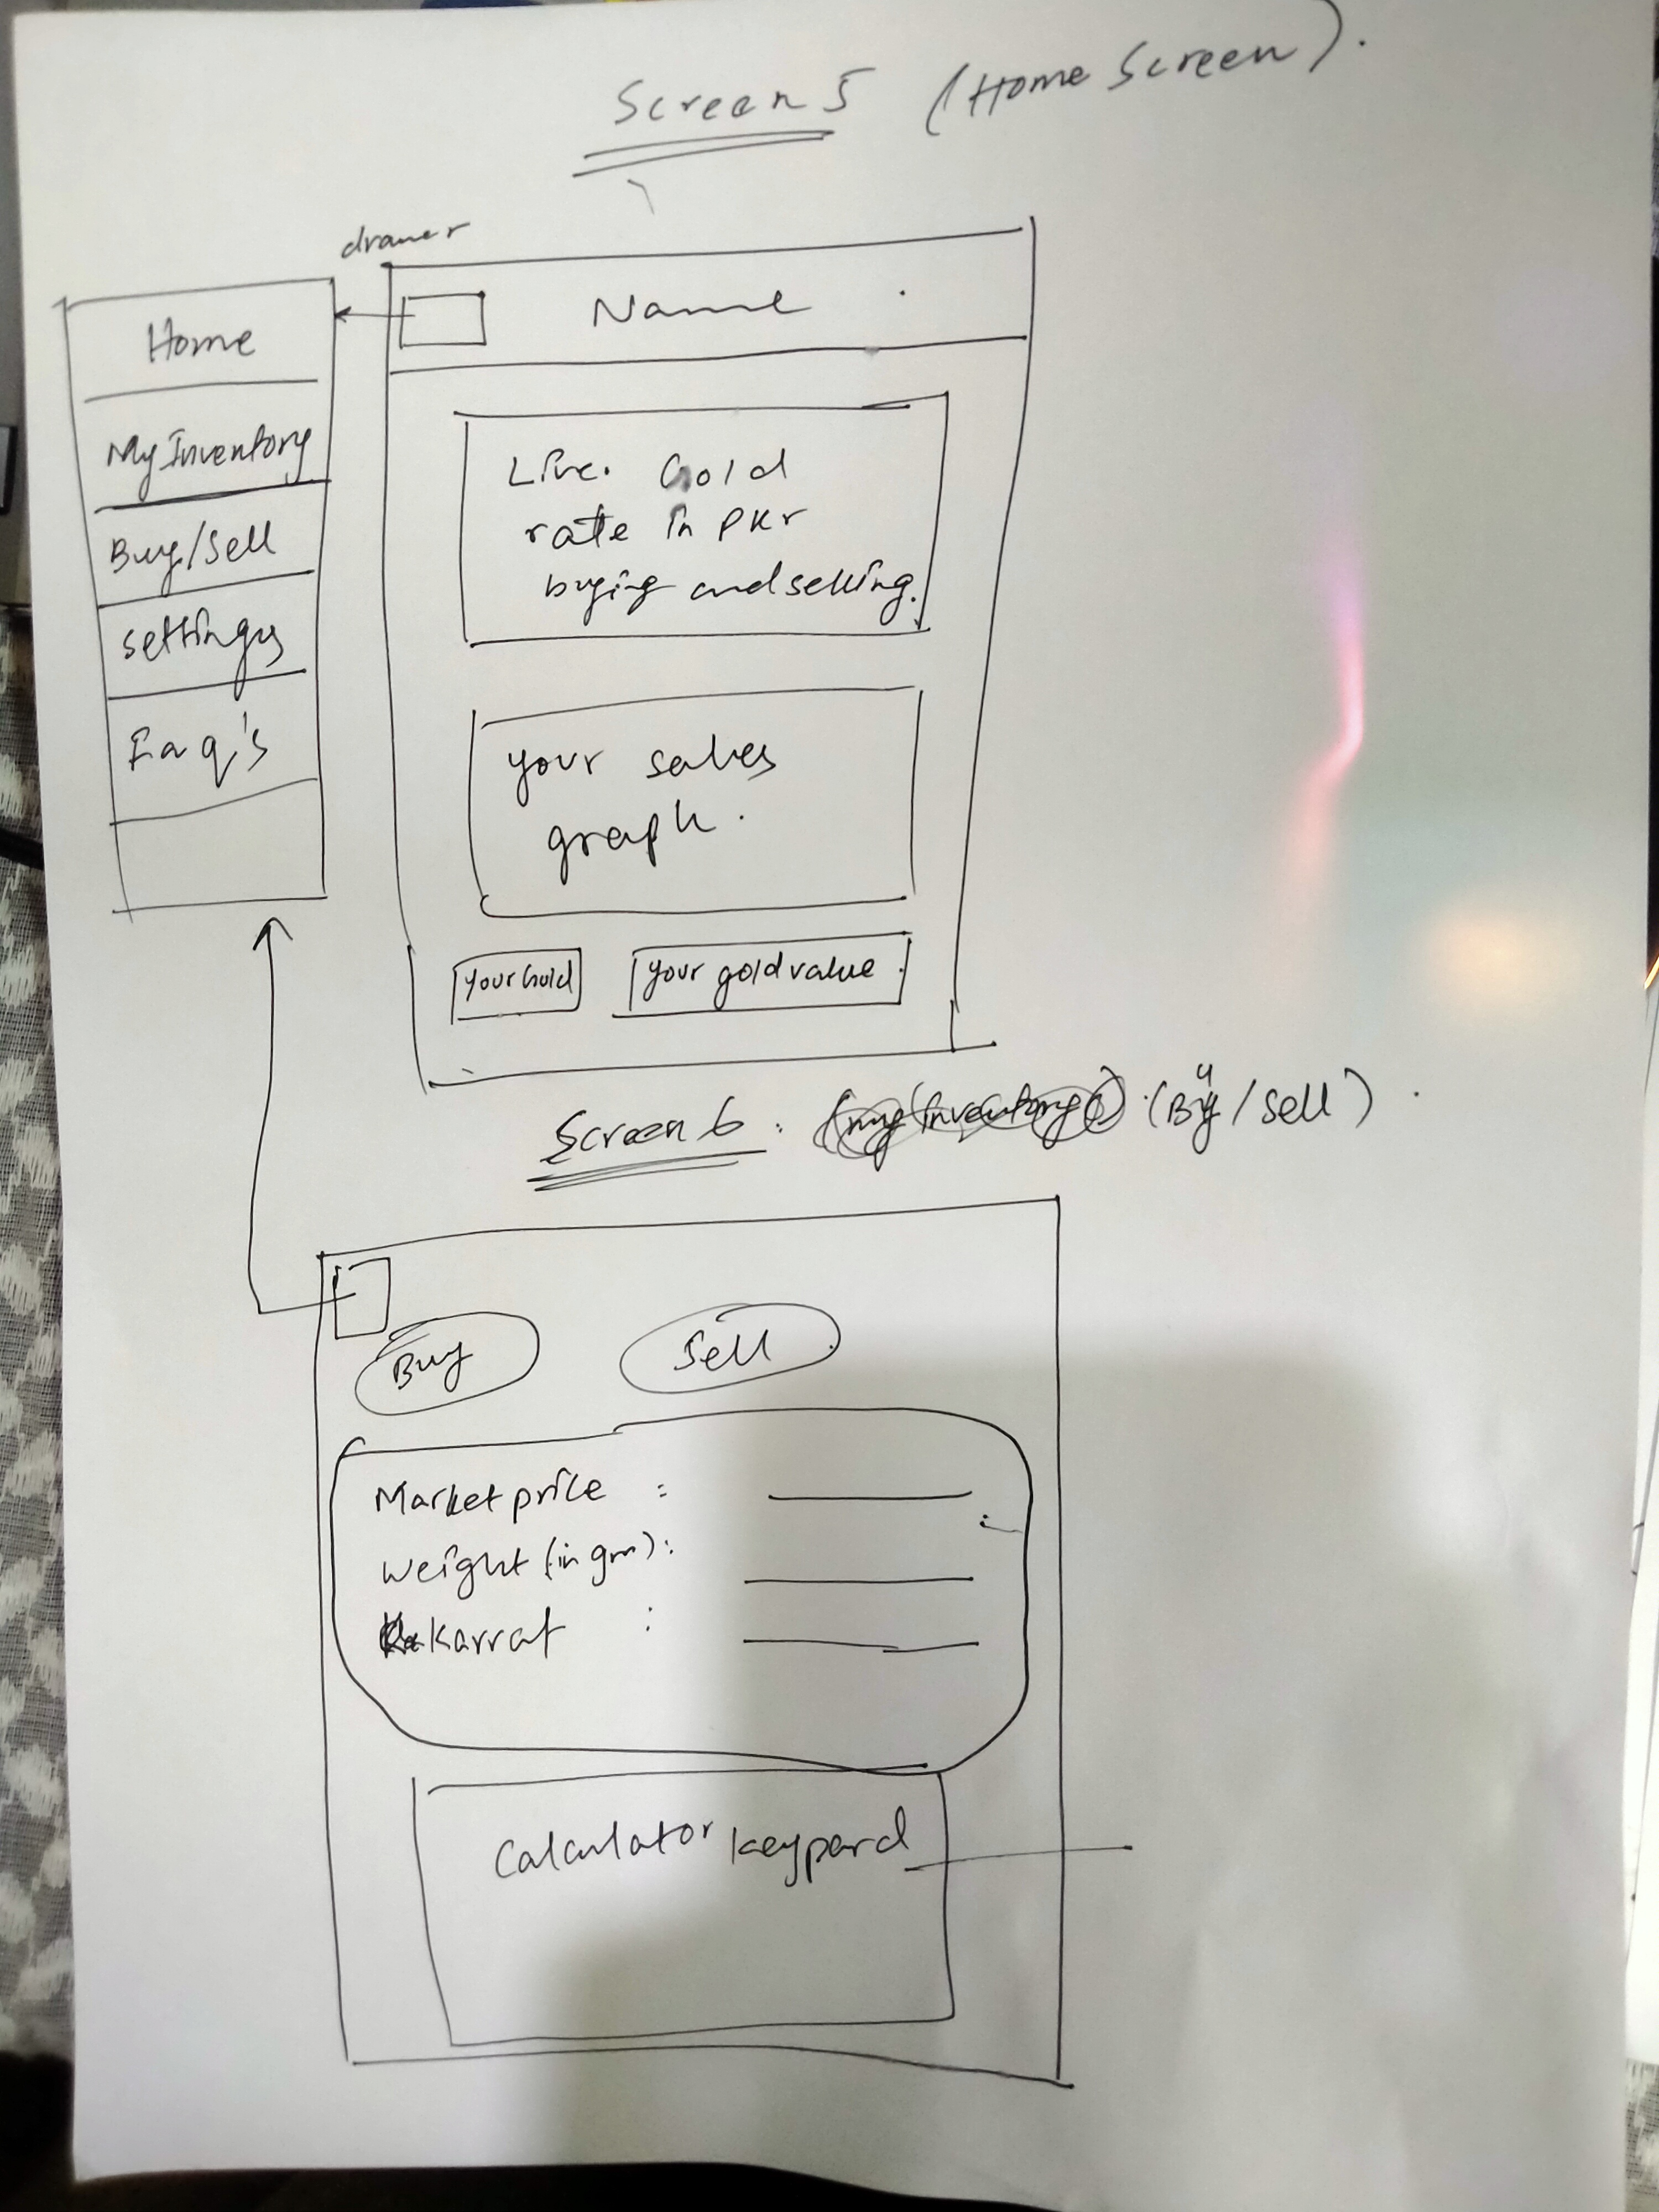 Screen 5 (Home Screen).
drawer
Name
Home
My Inventory
Buy/Sell
settings
Faq's
Live. Gold
rate in PKr
buying and selling.
your sales
graph.
your Gold
your gold value
Screen 6 : (my inventory) (Buy/Sell)
Buy
Sell
Market price :
Weight (in gm):
Karrat :
Calculator keypard